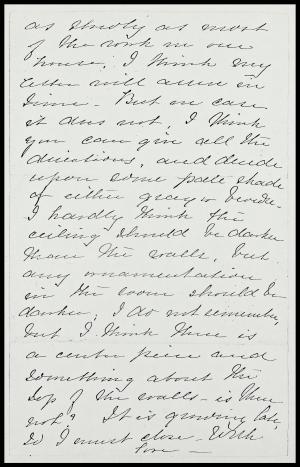 as slowly as most
of the work in our
house. I think my
letter will arrive in
time - But in case
it does not, I think
you can give all the
directions, and decide
upon some pale shade
of either gray or
I hardly think the
ceiling should be darker
than the walls, but
any ornamentation
in the room should be
darker; I do not remember,
but I think there is
a center piece and
something about the
top of the walls - is there
not? It is growing late,
so I must close - With
love -